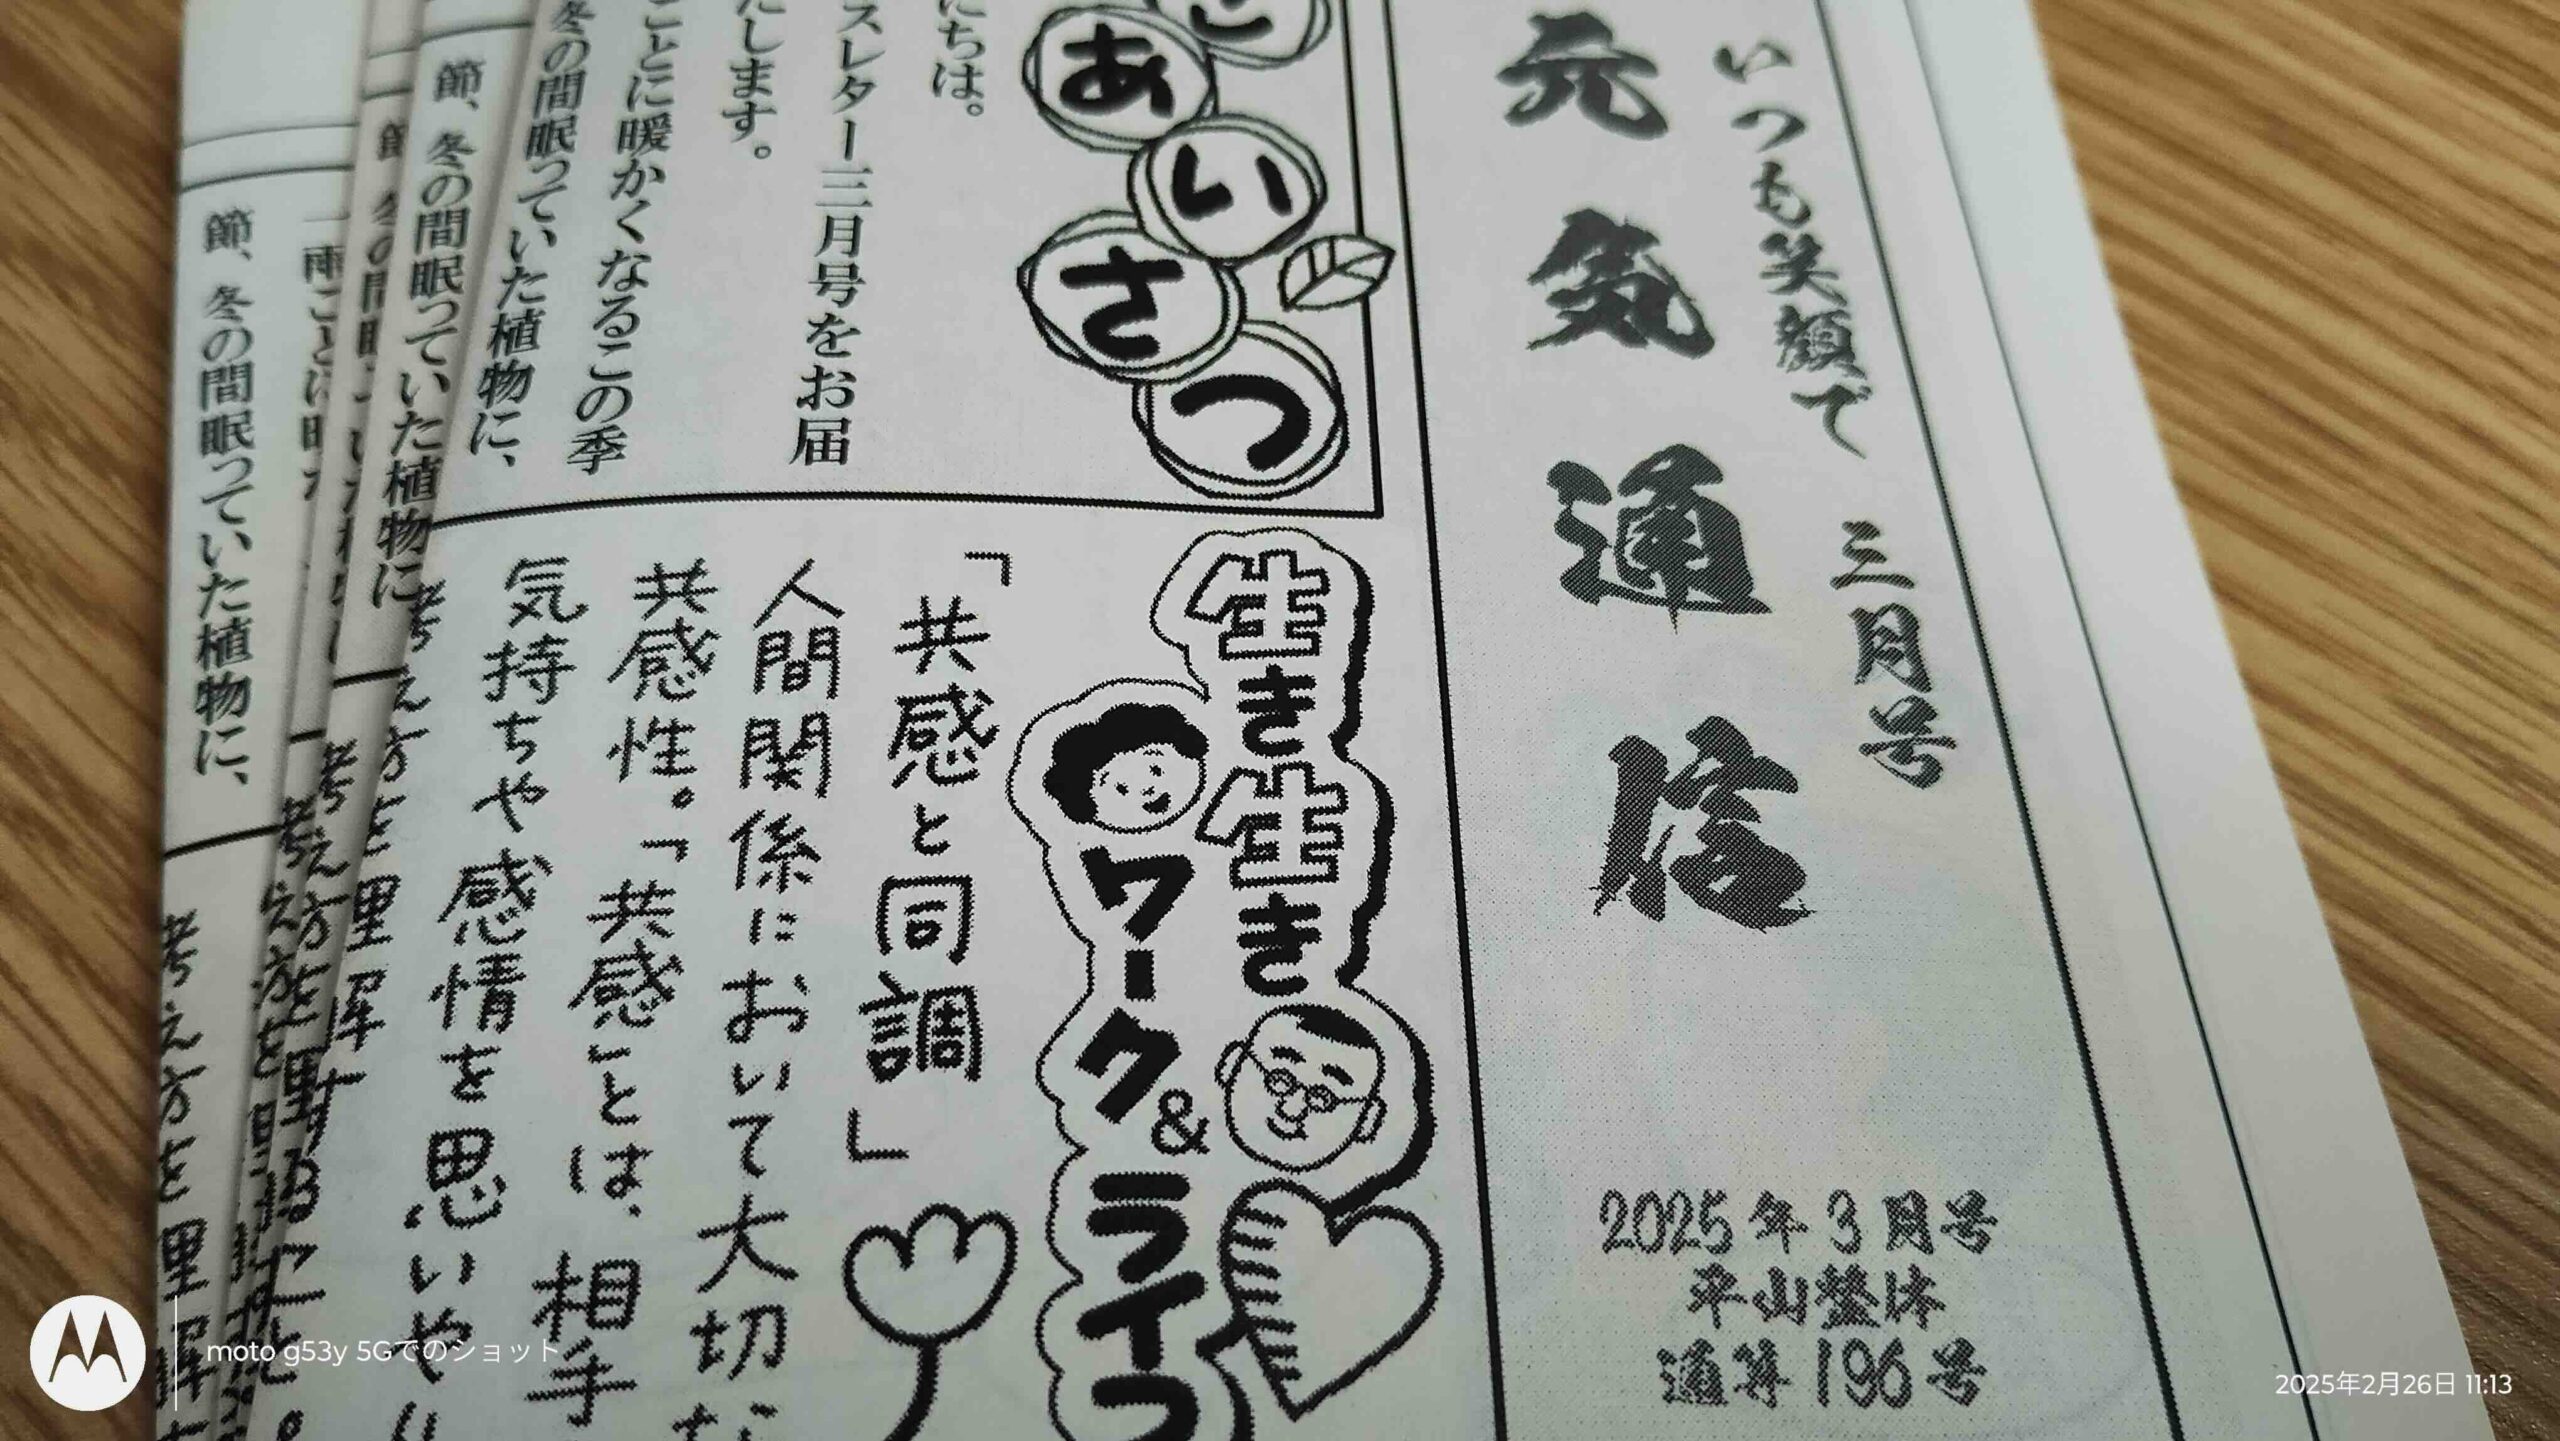 いつも笑顔で 三月号
元気通信
2025年3月号
平山整体
通算196号
ごあいさつ
にちは。
スレター三月号をお届
たします。
ごとに暖かくなるこの季
節、冬の間眠っていた植物に、
生き生き
ワーク&ライフ
「共感と同調」
人間関係において大切な
共感性。「共感」とは、相手
気持ちや感情を思いやり
冬の間眠っていた植物に、
節、冬の間眠っていた植物に、
考え方を理解
moto g53y 5Gでのショット
2025年2月26日 11:13